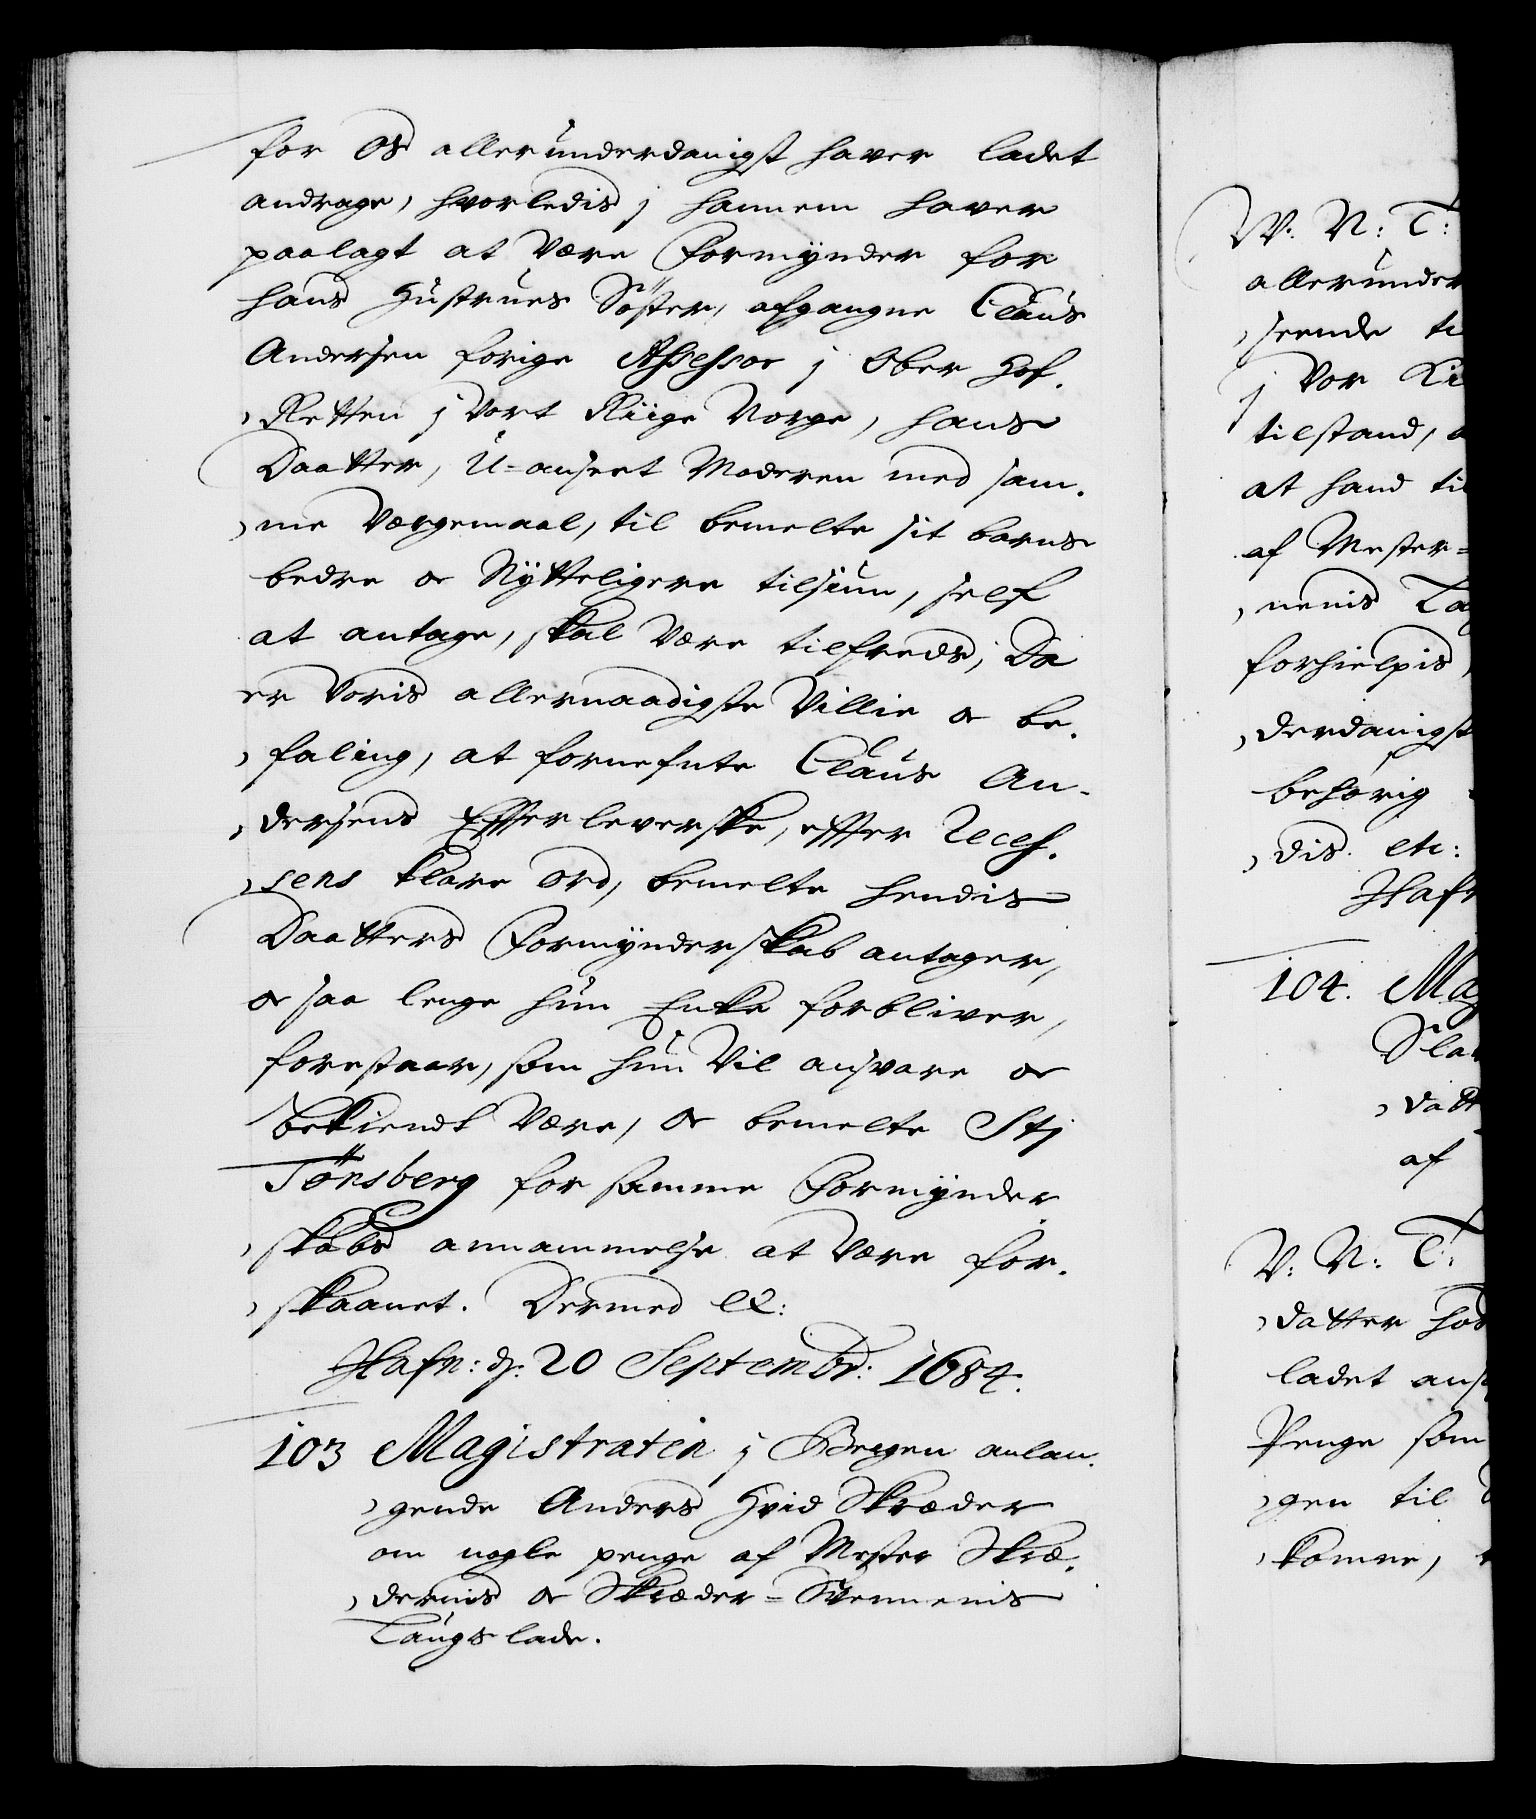 for Os allerunderdanigst haver ladet
andrage, hvorledis j hannem haver
paalagt at være Formynder for
hans Hustrues Söster, afgangne Claus
Andersen forige Assessor j Ober Hof-
Retten j Vort Riige Norge, hans
Daatter, U-anseet Moderen med sam-
me Værgemaal, til bemelte sit barns
bedre oc Nytteligere tilsiun, self
at antage, skal være tilfreds, Da
er Voris allernaadigste Villie oc be-
faling, at fornefnte Claus An-
dersens Efterleverske, efter Reces-
sens klare ord, bemelte hendis
Daatters Formynderskab antager,
oc saa lenge hun Enke forbliver,
forestaar, som hun Vil ansvare oc
bekiendt være, oc bemelte Stj
Tönsberg for samme Formynder
skabs annammelse at være for-
skaanet. Dermed etc:
Hafn: d. 20 Septembr: 1684.
103 Magistraten j Bergen anlan-
gende Anders Hvid Skræder
om nogle penge af Mester Skræ-
dernis oc Skræder-Svennenis
Laugs lade.
W: N: T:
allerunder
seende ti
j Vor Ki
tilstand,
at hand til
af Mester-
nenis La
forhielpis
derdanigst
behörig
dis. etc:
Hafn
104. Mag
Sla
datt
af
V: N: T:
datter hos
ladet ans
Penge som
gen til
komne,